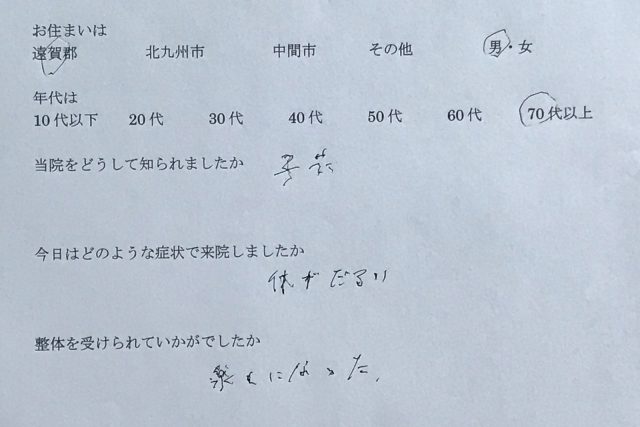 お住まいは
遠賀郡 北九州市 中間市 その他 男・女
年代は
10代以下 20代 30代 40代 50代 60代 70代以上
当院をどうして知られましたか
今日はどのような症状で来院しましたか
体がだるい
整体を受けられていかがでしたか
楽になった。